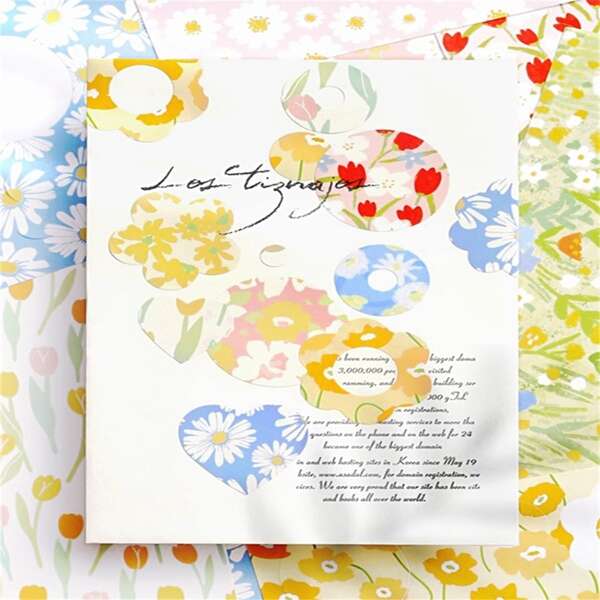 Los Tiznajos
s been running biggest doma
3,000,000 peo visited
ramming, and building ser
000 g.TLD
in registrations,
We are providing hosting services to more tha
questions on the phone and on the web for 24
become one of the biggest domain
in and web hosting sites in Korea since May 19
bsite, www.asadal.com, for domain registration, we
vices. We are very proud that our site has been cite
and books all over the world.